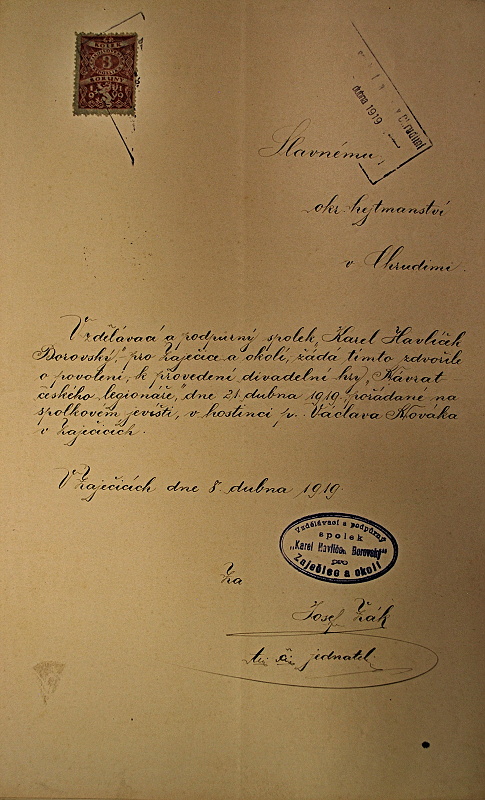 KOLEK
3
KORUNY
1919
dubna 1919
Slavnému
okr. hejtmanství
v Chrudimi.
Vzdělávací a podpůrný spolek „Karel Havlíček
Borovský," pro Zaječice a okolí, žádá tímto zdvořile
o povolení, k provedení divadelní hry „Návrat
českého legionáře," dne 21. dubna 1919, pořádané na
spolkovém jevišti, v hostinci p. Václava Nováka
v Zaječicích.
V Zaječicích dne 8. dubna 1919.
Vzdělávací a podpůrný
spolek
„Karel Havlíček Borovský"
pro
Zaječice a okolí
Za
Josef Žák
jednatel